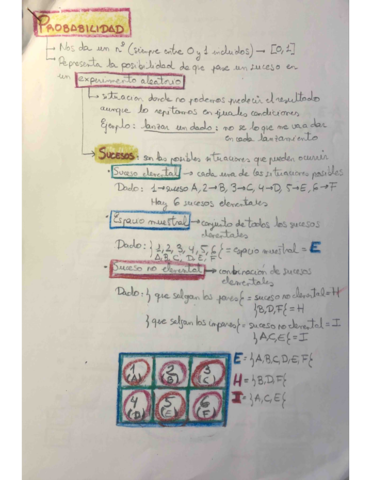 PROBABILIDAD
→ Nos da un nº (siempre entre 0 y 1 incluidos) → [0,1]
→ Representa la posibilidad de que pase un suceso en
un experimento aleatorio
→ situación donde no podemos predecir el resultado
aunque lo repitamos en iguales condiciones.
Ejemplo: lanzar un dado: no sé lo que me va a dar
en cada lanzamiento
→ Sucesos: son las posibles situaciones que pueden ocurrir
· Suceso elemental → cada una de las situaciones posibles
Dado: 1→suceso A, 2→B, 3→C, 4→D, 5→E, 6→F
Hay 6 sucesos elementales
· Espacio muestral → conjunto de todos los sucesos
elementales
Dado: {1, 2, 3, 4, 5, 6} = espacio muestral = E
A, B, C, D, E, F
· Suceso no elemental → combinación de sucesos
elementales
Dado: { que salgan los pares } = suceso no elemental = H
{B, D, F} = H
{ que salgan los impares } = suceso no elemental = I
{A, C, E} = I
1 (A) 2 (B) 3 (C)
4 (D) 5 (E) 6 (F)
E = {A, B, C, D, E, F}
H = {B, D, F}
I = {A, C, E}